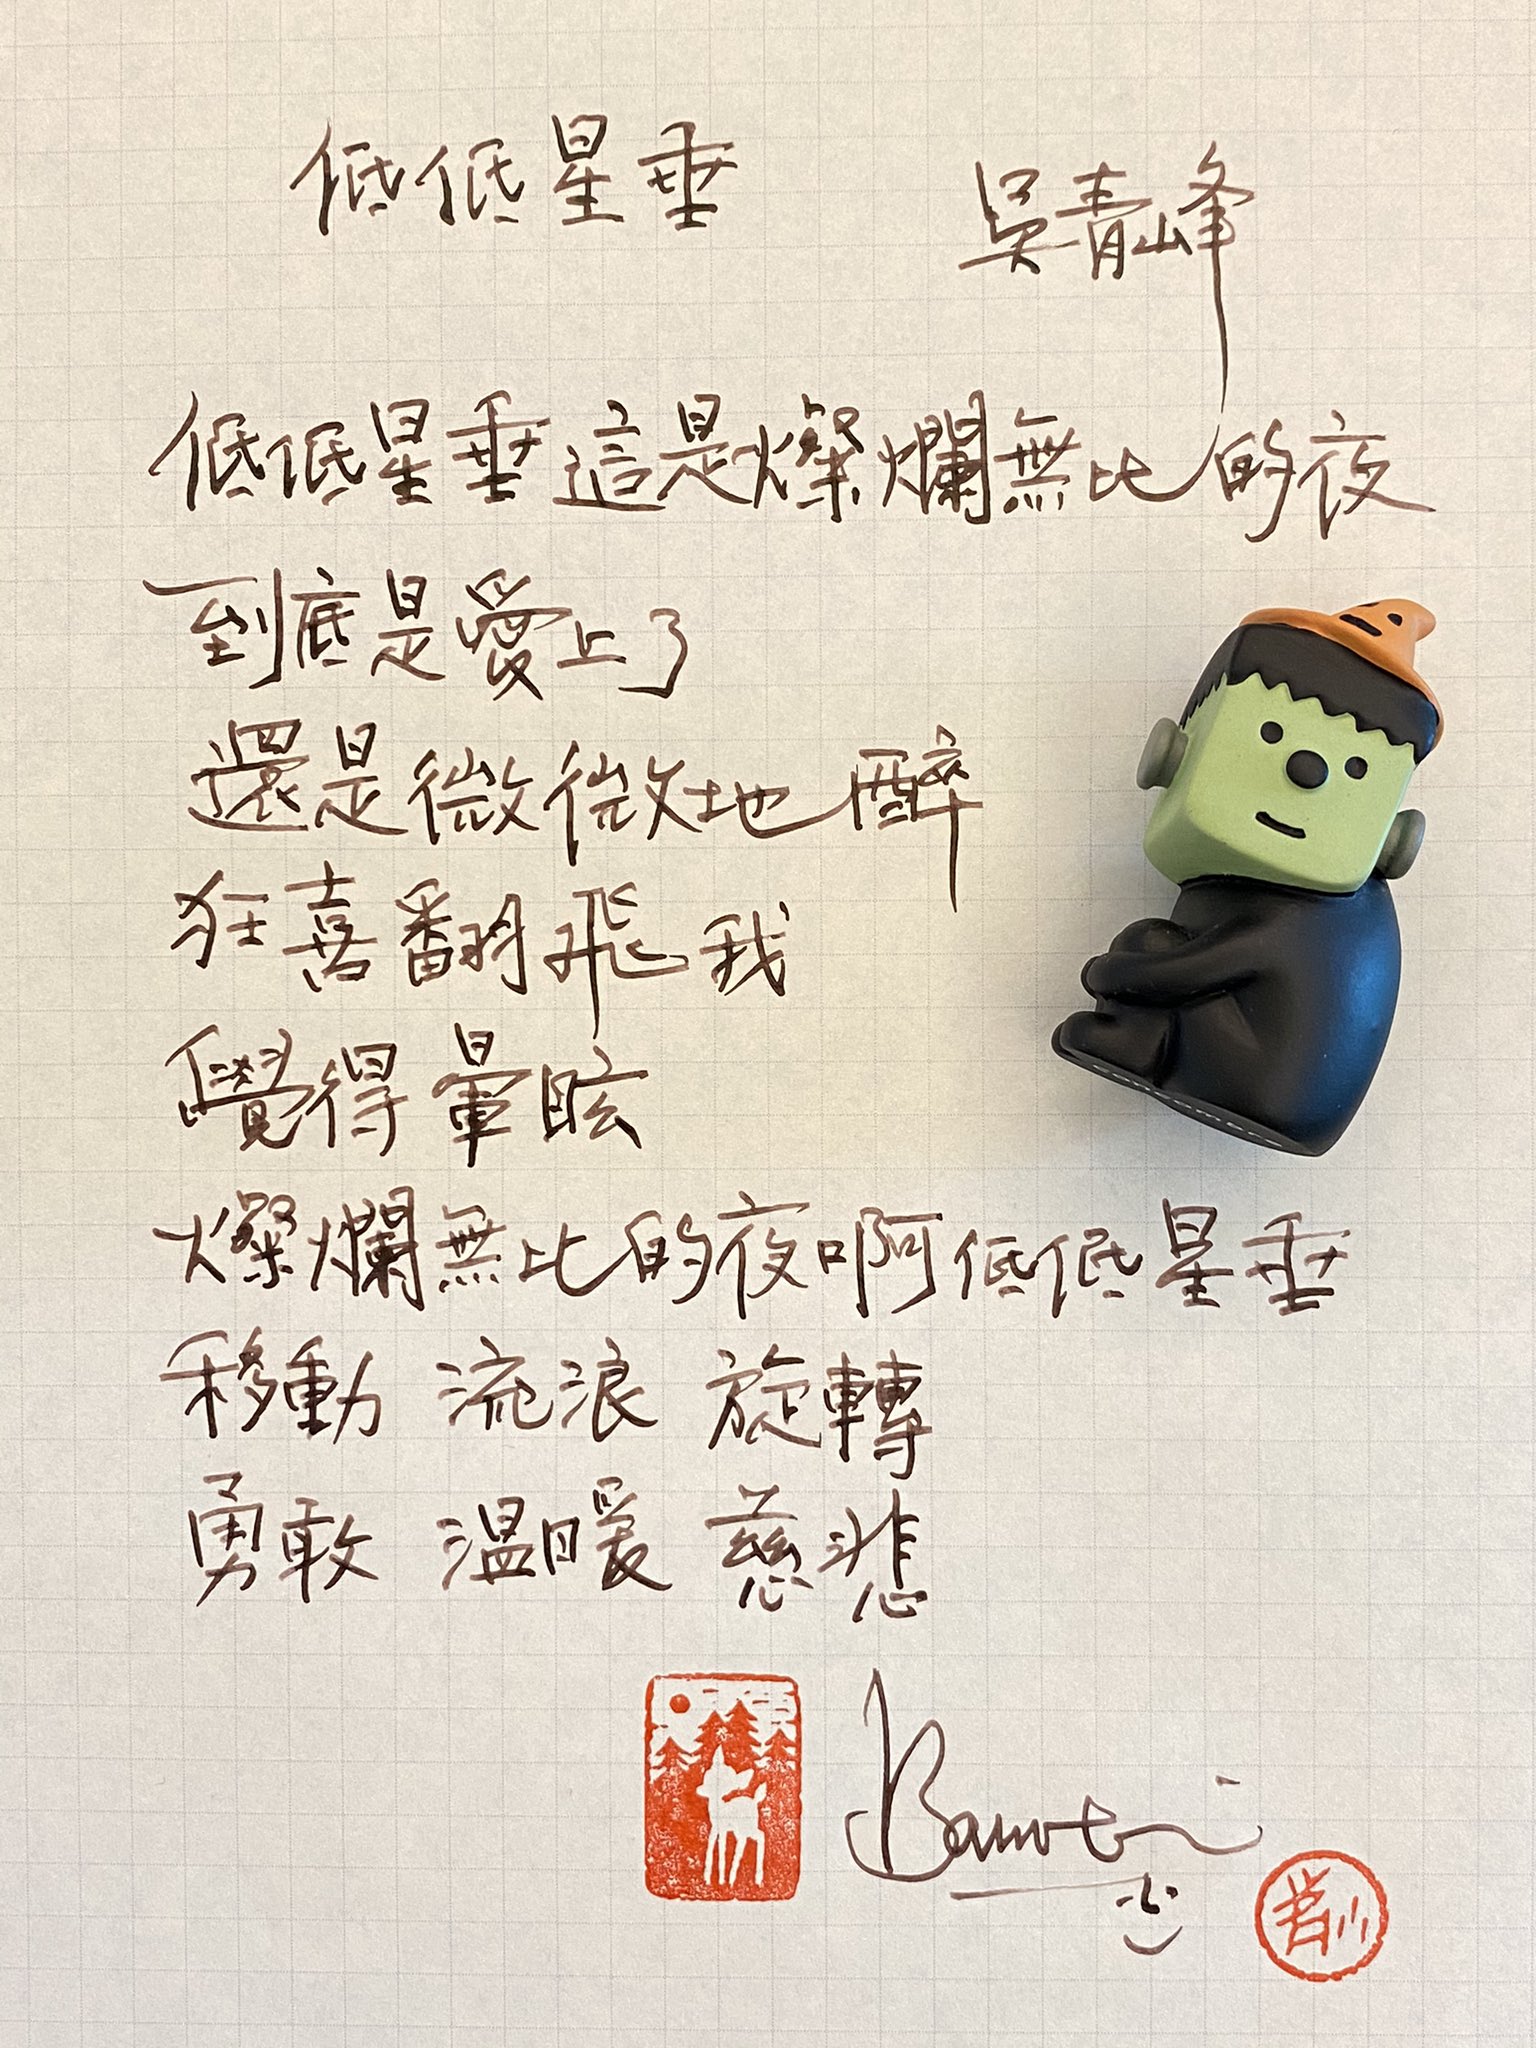 低低星垂
吳青峰
低低星垂這是燦爛無比的夜
到底是愛上了
還是微微地醉
狂喜翻飛我
覺得暈眩
燦爛無比的夜啊低低星垂
移動 流浪 旋轉
勇敢 溫暖 慈悲